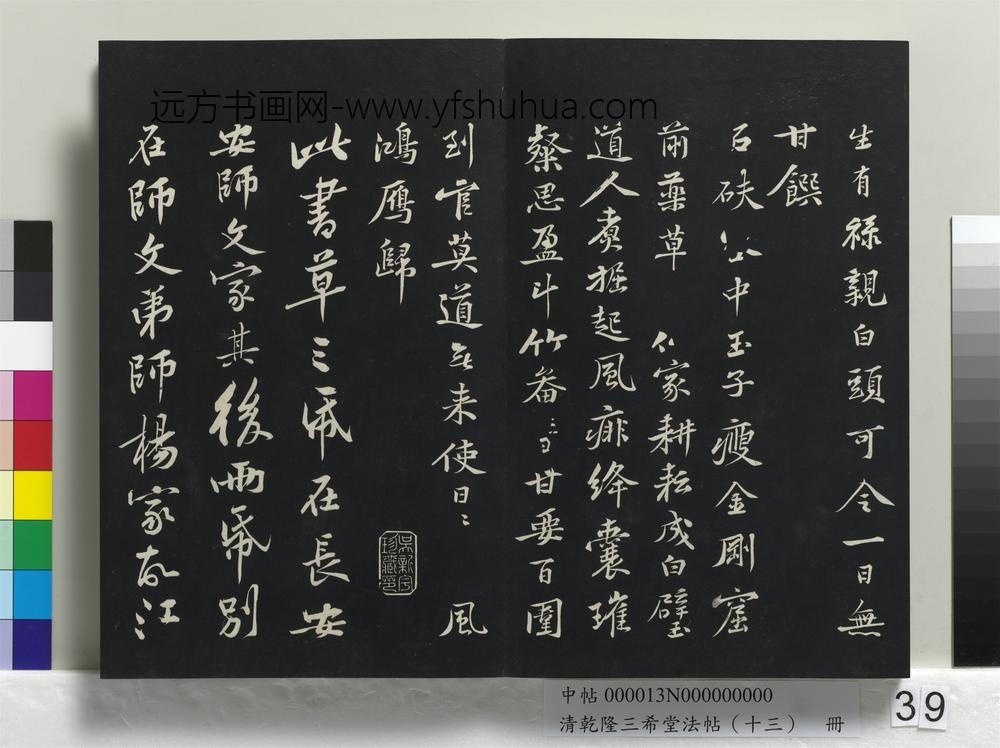 生有祿親白頭可令一日無
甘饌
石硤谷中玉子瘦金剛窟
前藥草 仙家耕耘成白璧
道人煮掘起風痱絳囊璀
粲思盈斗竹畚三寸甘要百團
到官莫道無來使日日 風
鴻鴈歸
此書草三帋在長安
安師文家其後兩帋別
在師文弟師楊家故江
吳新宇珍藏印
远方书画网-www.yfshuhua.com
中帖 000013N000000000
清乾隆三希堂法帖（十三） 冊
39